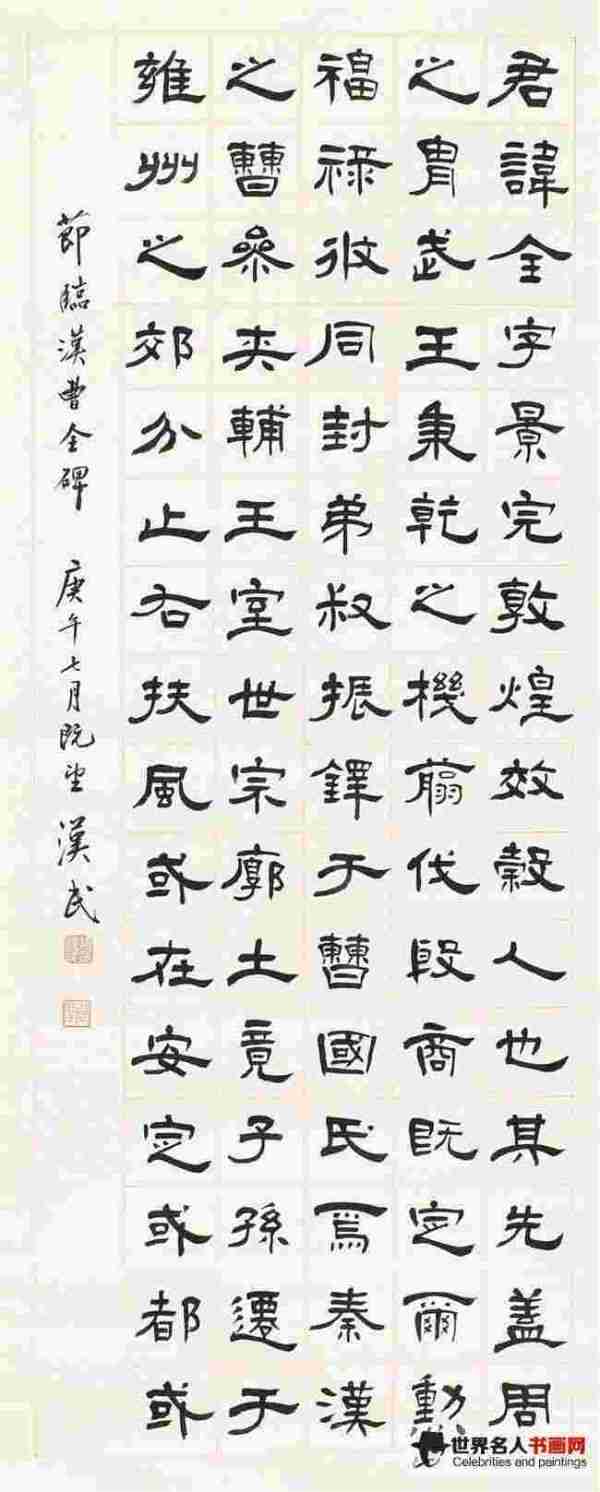 君諱全字景完敦煌效穀人也其先蓋周
之胄武王秉乾之機翦伐殷商既定爾勳
福祿攸同封弟叔振鐸于曹國氏焉秦漢
之曹參夾輔王室世宗廓土竟子孫遷于
雍州之郊分止右扶風或在安定或都或
節臨漢曹全碑 庚午七月既望 漢民
世界名人书画网
Celebrities and paintings